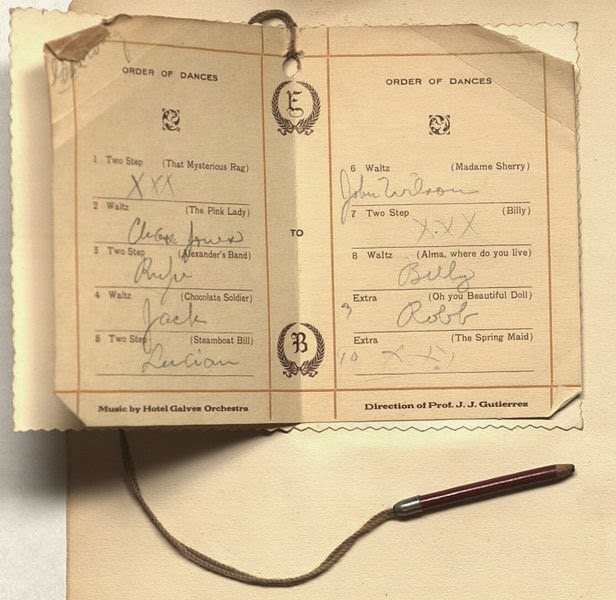 ORDER OF DANCES
1 Two Step (That Mysterious Rag)
XXX
2 Waltz (The Pink Lady)
Jones
3 Two Step (Alexander's Band)
Rufu
4 Waltz (Chocolate Soldier)
Jack
5 Two Step (Steamboat Bill)
Lucian
Music by Hotel Galvez Orchestra
E
TO
B
ORDER OF DANCES
6 Waltz (Madame Sherry)
John Wilson
7 Two Step (Billy)
X.X X
8 Waltz (Alma, where do you live)
Billy
Extra (Oh you Beautiful Doll)
9 Robb
Extra (The Spring Maid)
10 X X
Direction of Prof. J. J. Gutierrez